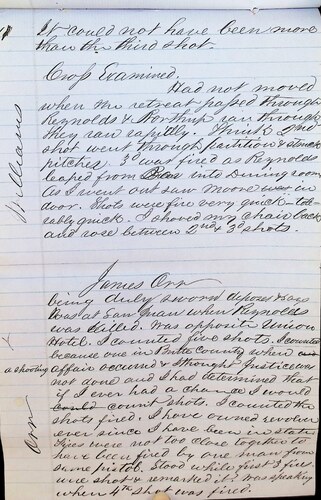 It could not have been more
than the third shot.
Cross Examined.
Had not moved
when the retreat passed through
Reynolds & Northrup ran through
they ran rapidly. I think 2nd
shot went through partition & struck
pitcher. 3d was fired as Reynolds
leaped from into Dining room
As I went out saw Moore in
door. Shots were fire very quick - tol-
erably quick. I shoved my chair back
and rose between 2nd & 3d shots.
Williams
James Orr
being duly sworn deposes & says
Was at San Juan when Reynolds
was killed. Was opposite Union
Hotel. I counted five shots. I counted
because one in Butte County when
a shooting affair occurred & thought Justice was
not done and I had determined that
if I ever had a chance I would
count shots. I counted the
shots fired. I have owned revolver
ever since I have been in state.
Fires were not too close together to
have been fired by one man from
same pistol. Stood while first 3 fires
were shot & remarked it. was speaking
when 4th shot was fired.
x
Orr